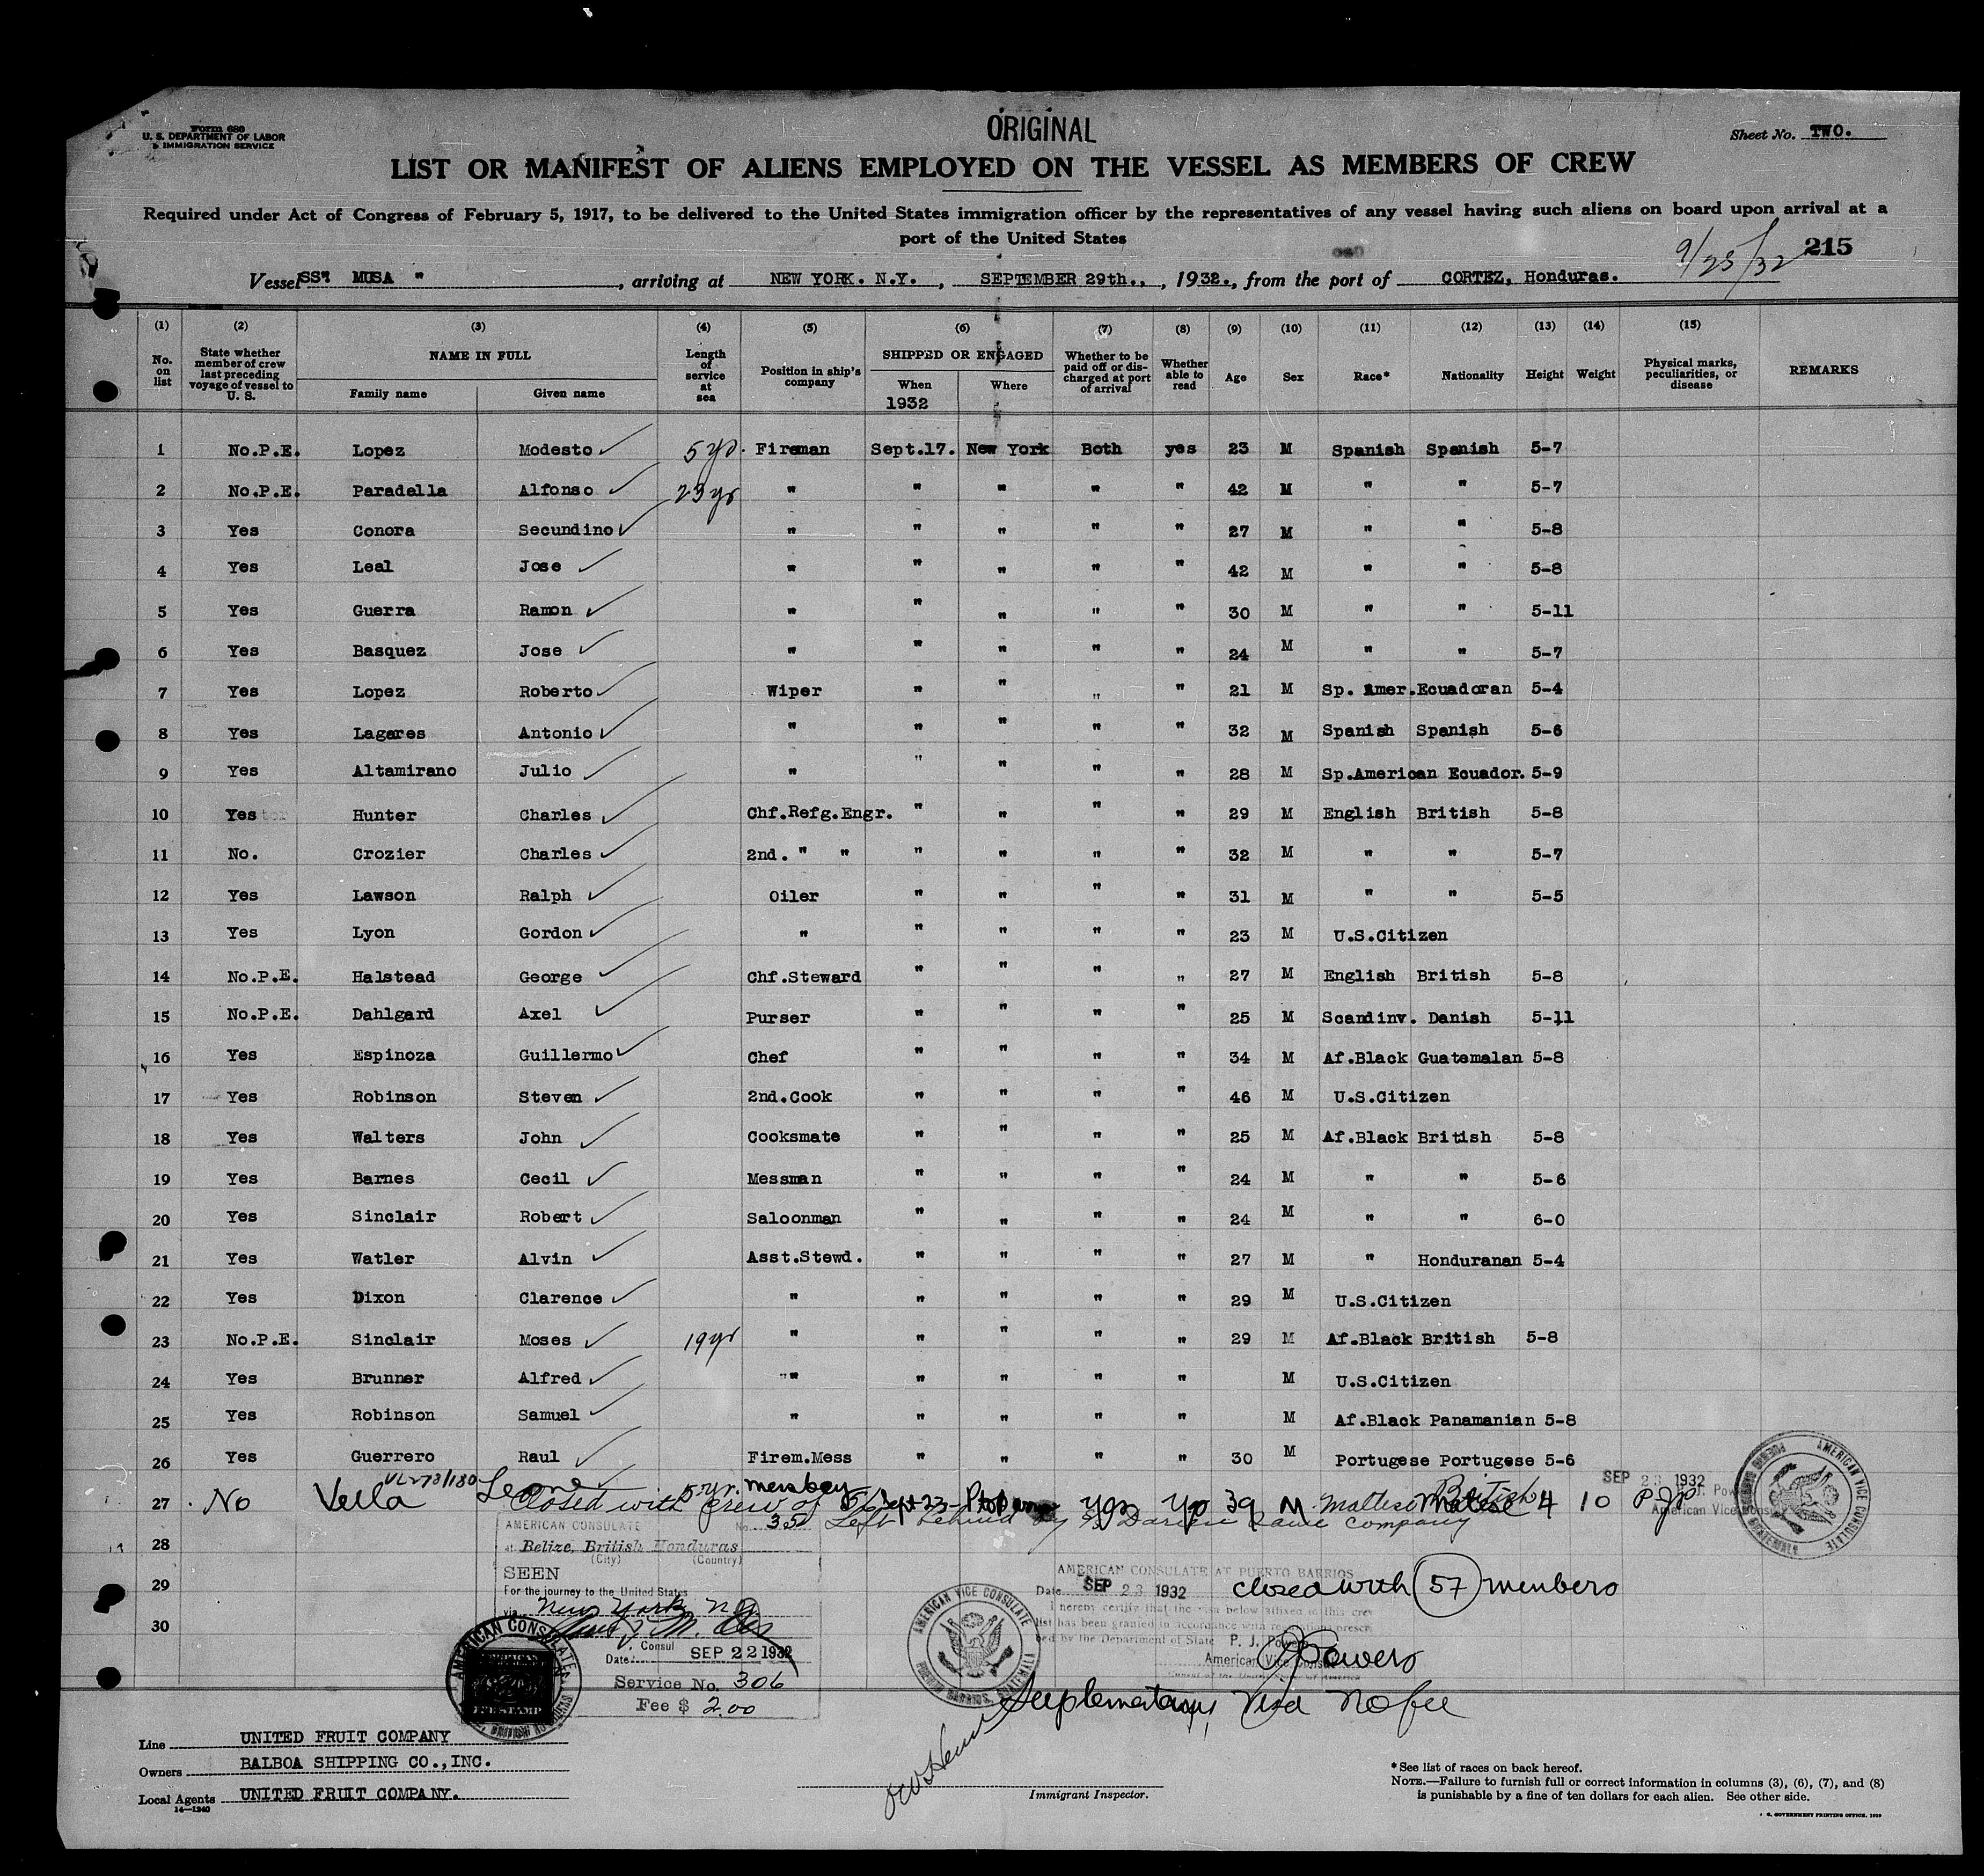 Form 680
U. S. DEPARTMENT OF LABOR
IMMIGRATION SERVICE
ORIGINAL
Sheet No. TWO.
LIST OR MANIFEST OF ALIENS EMPLOYED ON THE VESSEL AS MEMBERS OF CREW
Required under Act of Congress of February 5, 1917, to be delivered to the United States immigration officer by the representatives of any vessel having such aliens on board upon arrival at a
port of the United States
215
Vessel SS" MUSA " , arriving at NEW YORK. N.Y. , SEPTEMBER 29th., , 1932., from the port of CORTEZ, Honduras.
(1) (2) (3) (4) (5) (6) (7) (8) (9) (10) (11) (12) (13) (14) (15)
No. on list State whether member of crew last preceding voyage of vessel to U. S. NAME IN FULL Family name Given name Length of service at sea Position in ship's company SHIPPED OR ENGAGED When 1932 Where Whether to be paid off or discharged at port of arrival Whether able to read Age Sex Race* Nationality Height Weight Physical marks, peculiarities, or disease REMARKS
1 No.P.E. Lopez Modesto 5 yr. Fireman Sept.17. New York Both yes 23 M Spanish Spanish 5-7
2 No.P.E. Paradella Alfonso 23 yr " " " " " 42 M " " 5-7
3 Yes Conora Secundino " " " " " 27 M " " 5-8
4 Yes Leal Jose " " " " " 42 M " " 5-8
5 Yes Guerra Ramon " " " " " 30 M " " 5-11
6 Yes Basquez Jose " " " " " 24 M " " 5-7
7 Yes Lopez Roberto Wiper " " " " 21 M Sp. Amer. Ecuadoran 5-4
8 Yes Lagares Antonio " " " " " 32 M Spanish Spanish 5-6
9 Yes Altamirano Julio " " " " " 28 M Sp.American Ecuador. 5-9
10 Yes Hunter Charles Chf.Refg.Engr. " " " " 29 M English British 5-8
11 No. Crozier Charles 2nd. " " " " " " 32 M " " 5-7
12 Yes Lawson Ralph Oiler " " " " 31 M " " 5-5
13 Yes Lyon Gordon " " " " " 23 M U.S.Citizen
14 No.P.E. Halstead George Chf.Steward " " " " 27 M English British 5-8
15 No.P.E. Dahlgard Axel Purser " " " " 25 M Scandinv. Danish 5-11
16 Yes Espinoza Guillermo Chef " " " " 34 M Af.Black Guatemalan 5-8
17 Yes Robinson Steven 2nd.Cook " " " " 46 M U.S.Citizen
18 Yes Walters John Cooksmate " " " " 25 M Af.Black British 5-8
19 Yes Barnes Cecil Messman " " " " 24 M " " 5-6
20 Yes Sinclair Robert Saloonman " " " " 24 M " " 6-0
21 Yes Watler Alvin Asst.Stewd. " " " " 27 M " Honduranan 5-4
22 Yes Dixon Clarence " " " " " 29 M U.S.Citizen
23 No.P.E. Sinclair Moses 19 yr " " " " " 29 M Af.Black British 5-8
24 Yes Brunner Alfred " " " " " M U.S.Citizen
25 Yes Robinson Samuel " " " " " M Af.Black Panamanian 5-8
26 Yes Guerrero Raul Firem.Mess " " " " 30 M Portugese Portugese 5-6
27 No Vella 5 yr. messboy Sept 23 yes yes 39 M Maltese British 4 10 PJP
SEP 23 1932
American Vice Consul
Closed with crew of
Left behind by
company
28
29
30
AMERICAN CONSULATE No. 35
at Belize, British Honduras
(City) (Country)
SEEN
For the journey to the United States
via New York, N.Y.
V. Consul
Date: SEP 22 1932
Service No. 306
Fee $ 2.00
AMERICAN VICE CONSULATE
PUERTO BARRIOS, GUATEMALA
AMERICAN CONSULATE AT PUERTO BARRIOS
Date SEP 23 1932 closed with 57 members
I hereby certify that the visa below affixed to this crew
list has been granted in accordance with regulations prescri-
bed by the Department of State P. J. Powers
American Vice Consul
Suplementary Visa No fee
Line UNITED FRUIT COMPANY
Owners BALBOA SHIPPING CO.,INC.
Local Agents UNITED FRUIT COMPANY.
14—1240
Immigrant Inspector.
* See list of races on back hereof.
NOTE.—Failure to furnish full or correct information in columns (3), (6), (7), and (8)
is punishable by a fine of ten dollars for each alien. See other side.